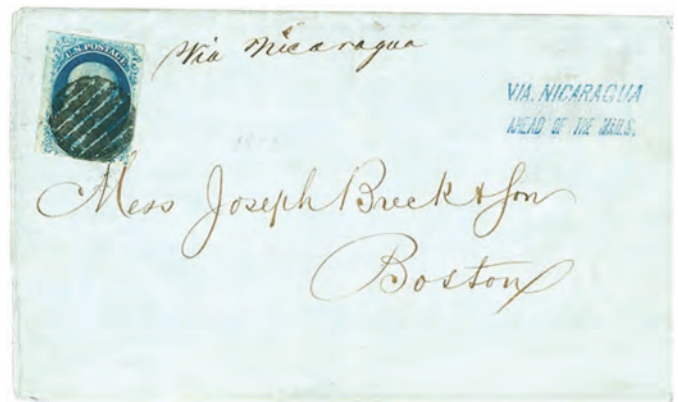 U.S. POSTAGE
Via Nicaragua
VIA. NICARAGUA
AHEAD OF THE MAILS.
Mess Joseph Breck & Son
Boston